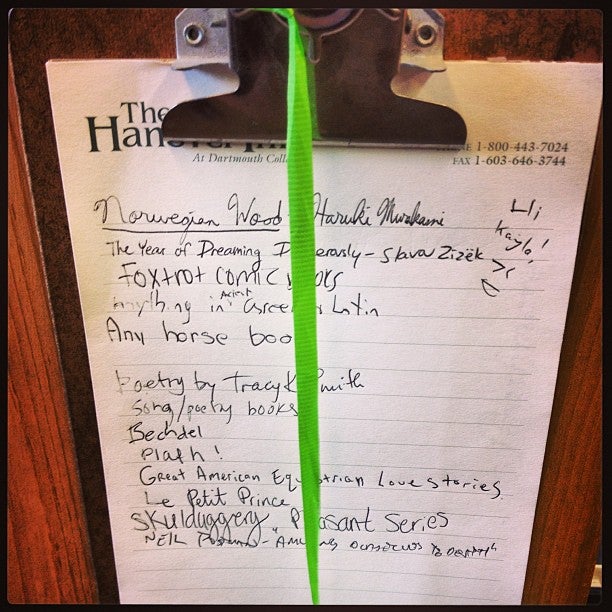 The
Hanover Inn
At Dartmouth Coll
PHONE 1-800-443-7024
FAX 1-603-646-3744
Norwegian Wood - Haruki Murakami
Hi
Kayla!
The Year of Dreaming Dangerously - Slavoj Zizek
Foxtrot comic books
Anything in Ancient Greek or Latin
Any horse boo
Poetry by Tracy K Smith
Song/poetry books
Bechdel
Plath!
Great American Equestrian Love stories
Le Petit Prince
Skulduggery Pleasant Series
Neil Postman - "Amusing Ourselves to Death"